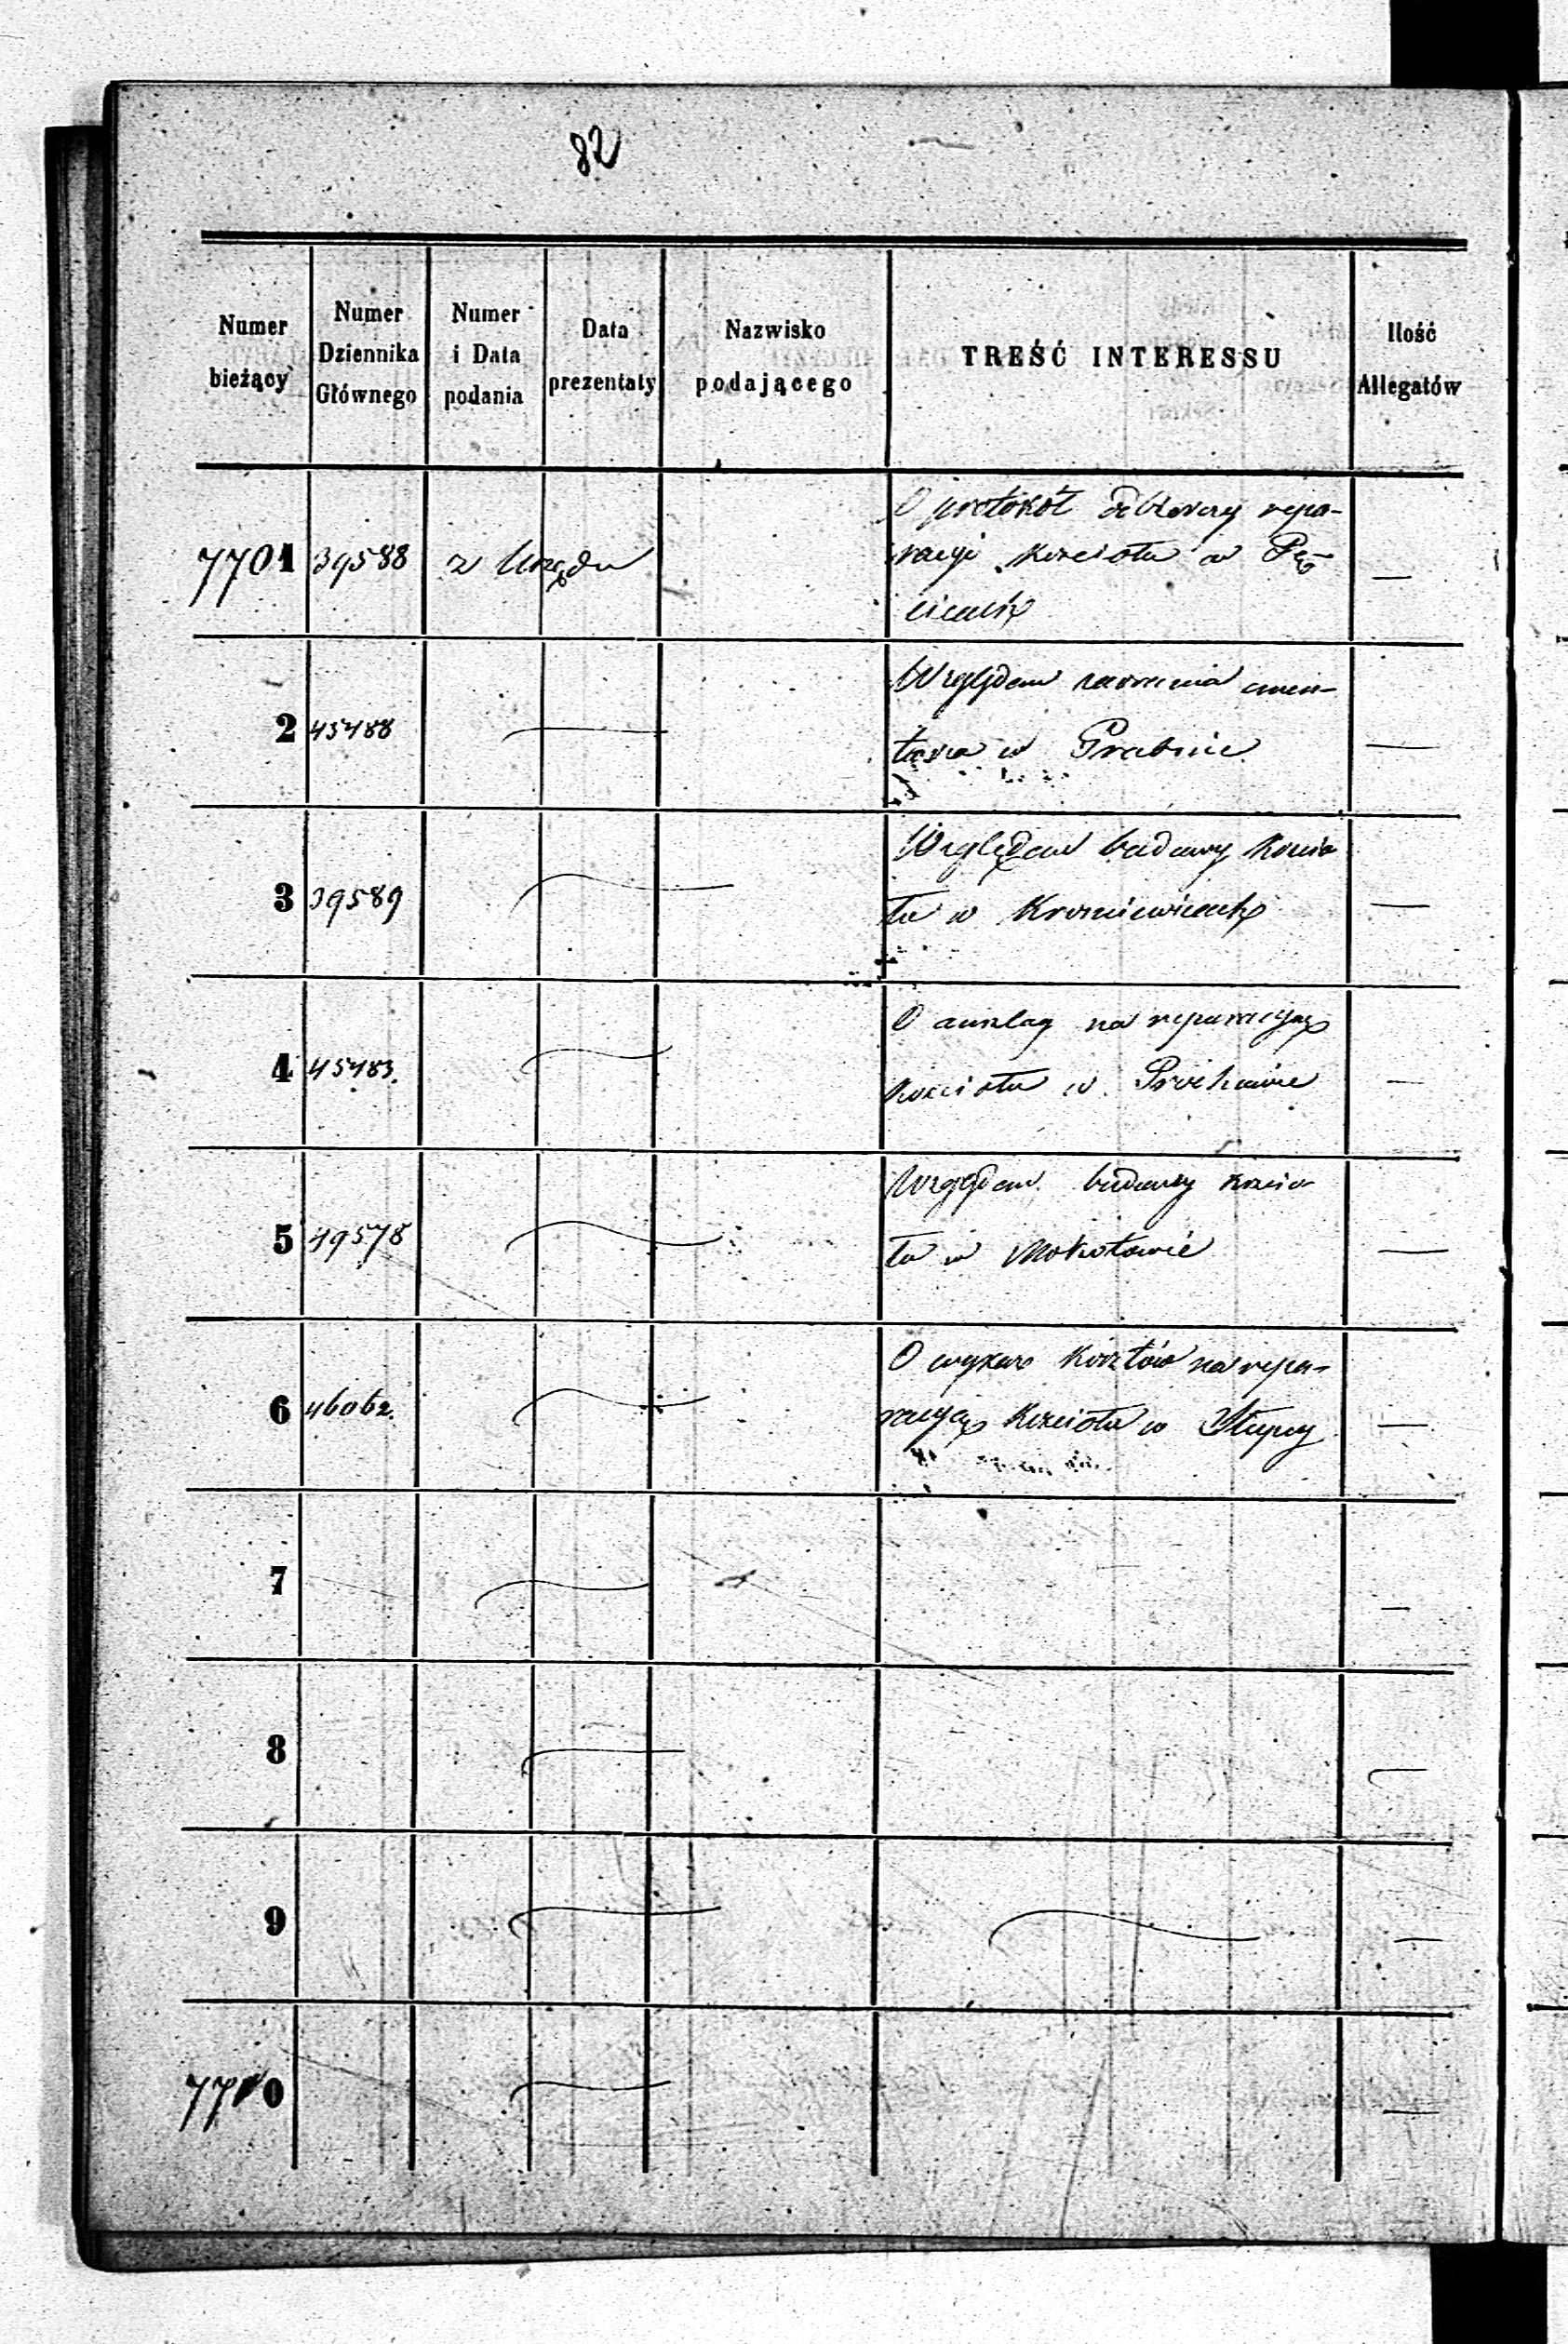 82
Numer bieżący
Numer Dziennika Głównego
Numer i Data podania
Data prezentaty
Nazwisko podającego
TREŚĆ INTERESSU
Ilość Allegatów
7701 39588 z Urzędu O protokół odbiorczy repa-
racyi kościoła w Pę-
cicach —
2 45488 — Względem cmen-
tarza w —
3 39589 — Względem budowy kościo
ła w —
4 45483. — O na reparacyą
kościoła w —
5 49578 — Względem budowy kościo
ła w Mokotowie —
6 46062. — O wykaz kosztów na repa-
racyą kościoła w Słupcy —
7 — —
8 — —
9 — — —
7710 — —